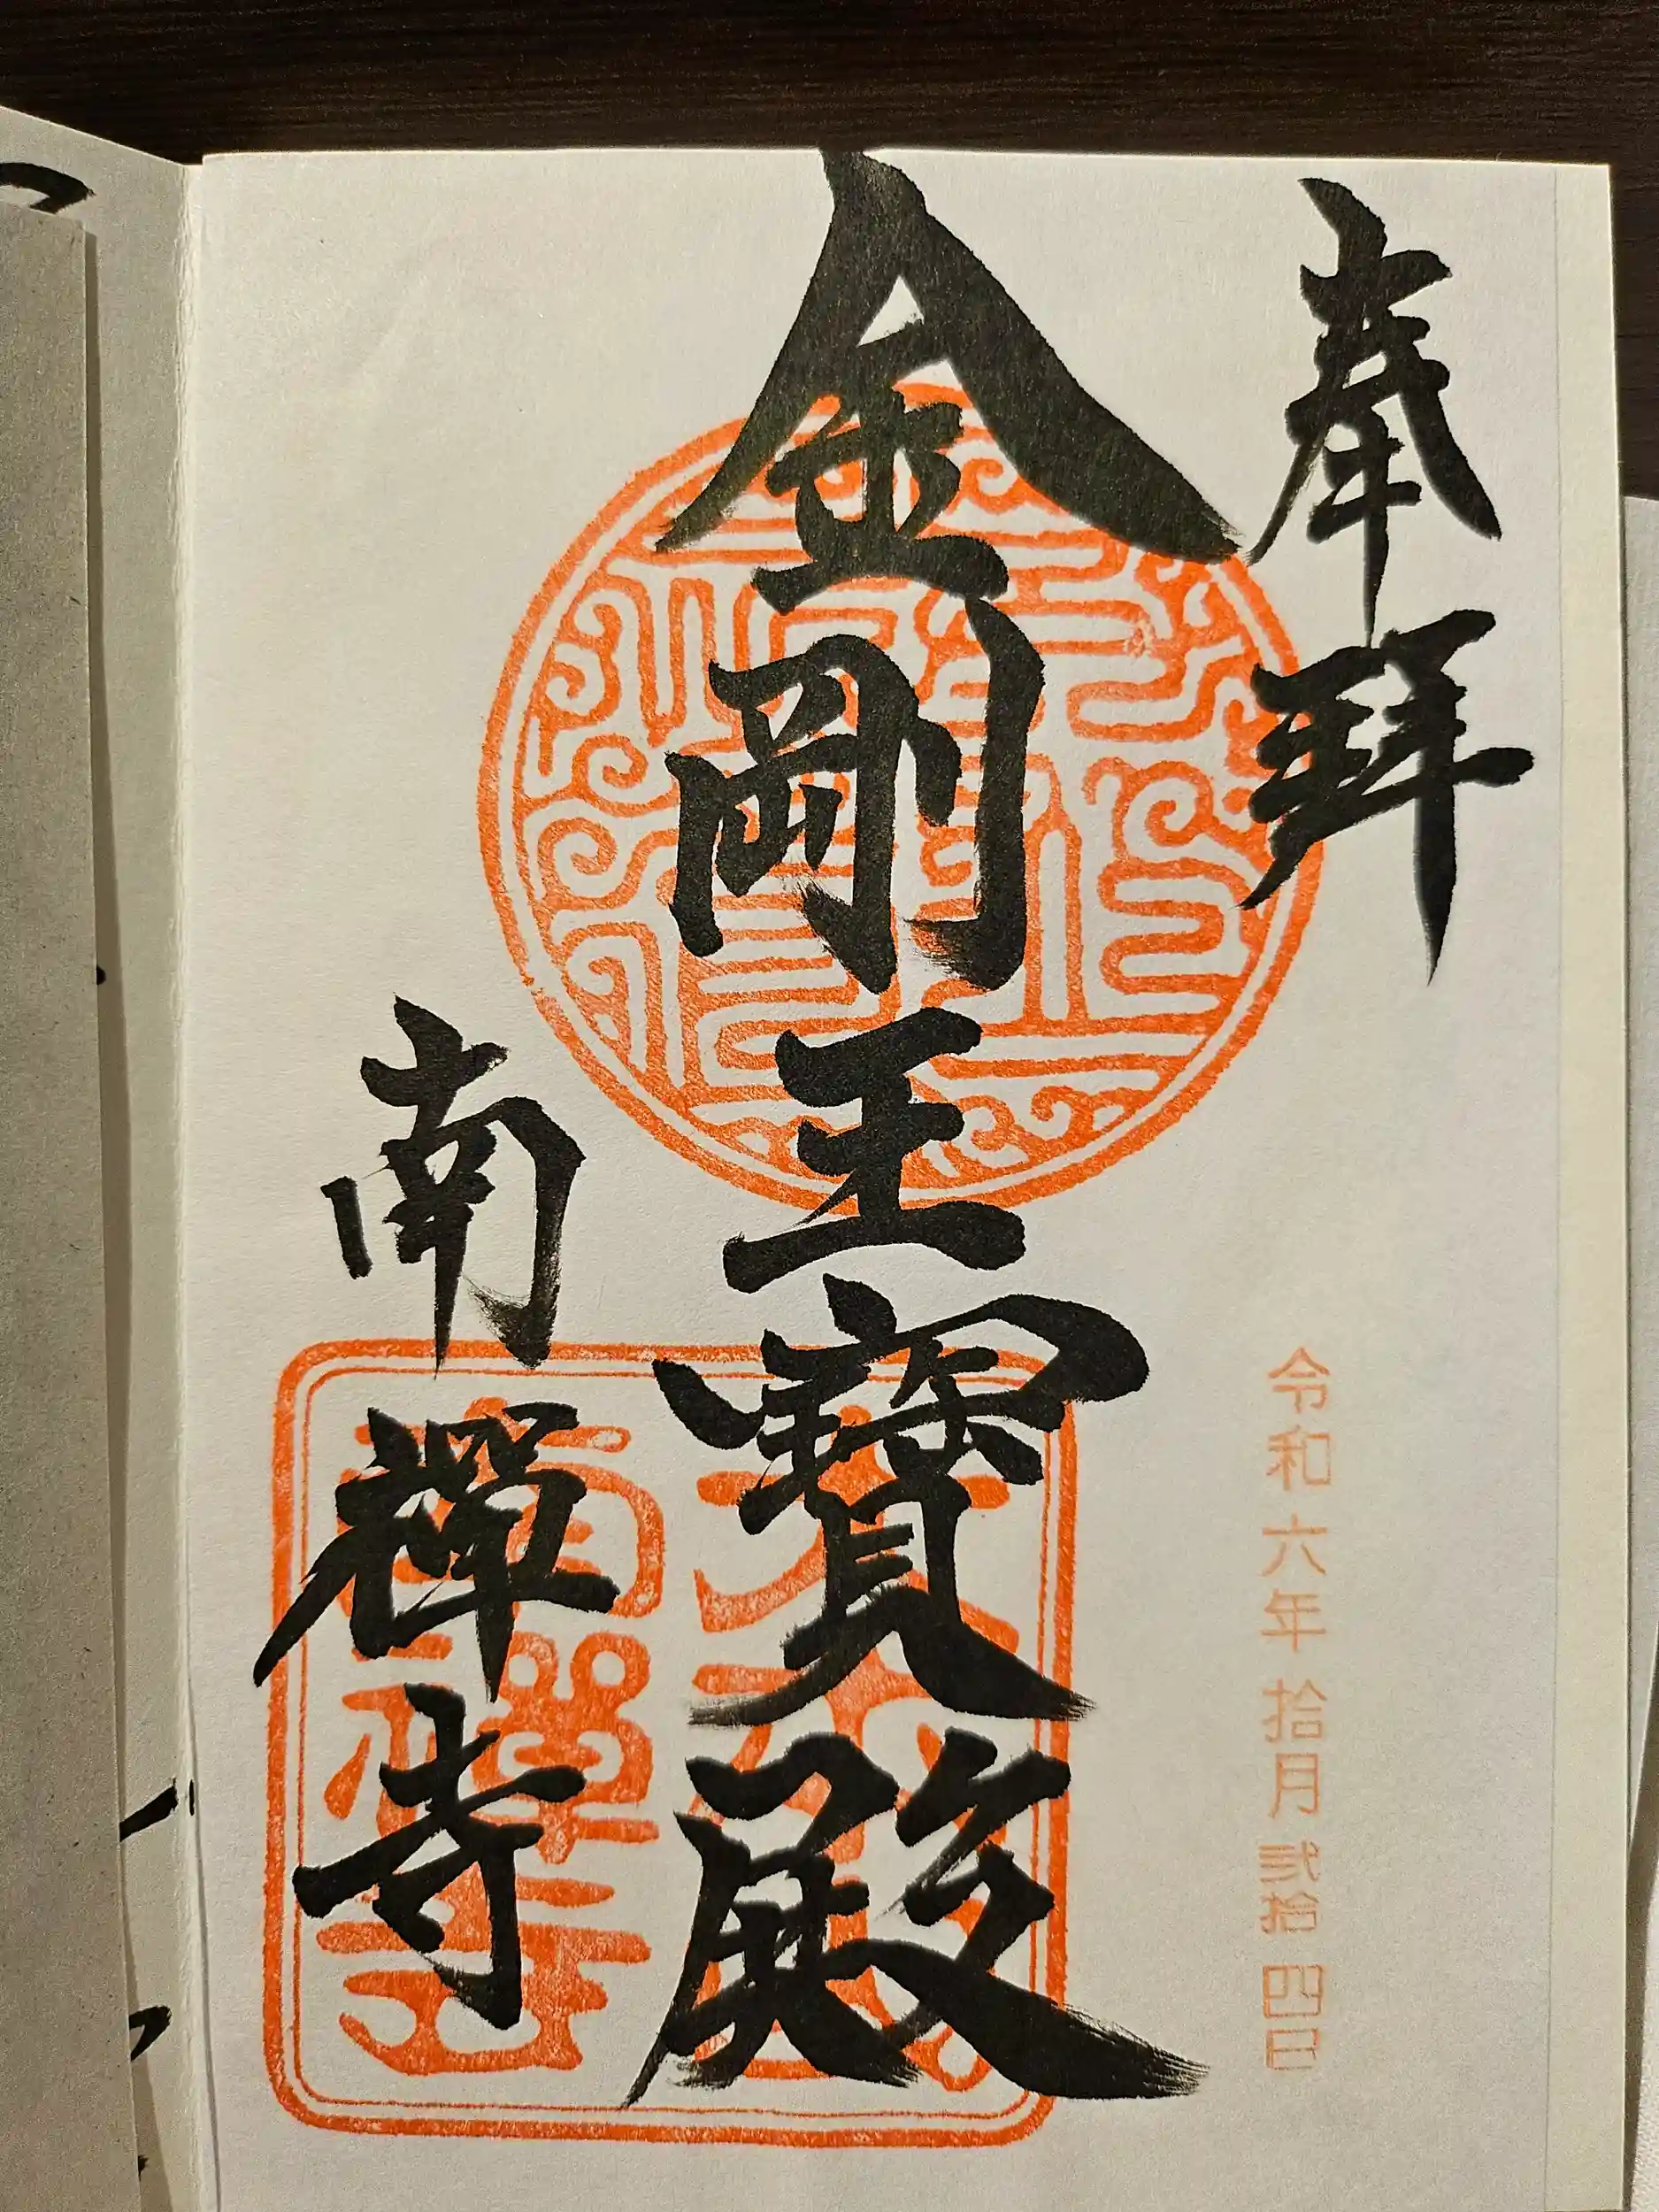 奉拜
令和六年拾月弐拾四日
金剛王寶殿
南禪寺